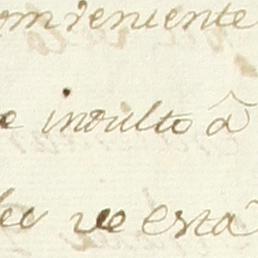 omveniente
e indulto â
ve esta